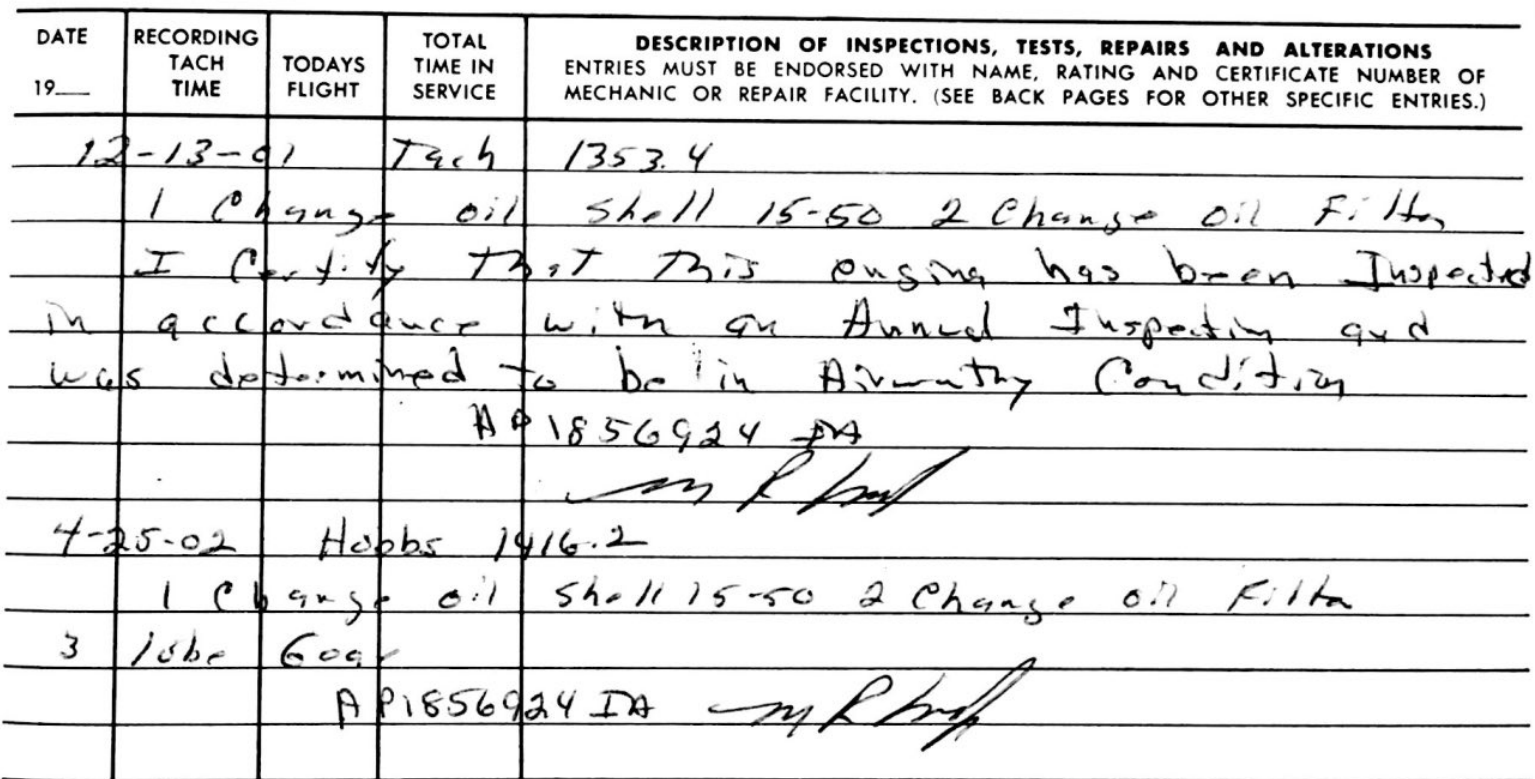 DATE RECORDING TACH TIME TODAYS FLIGHT TOTAL TIME IN SERVICE DESCRIPTION OF INSPECTIONS, TESTS, REPAIRS AND ALTERATIONS
19__ ENTRIES MUST BE ENDORSED WITH NAME, RATING AND CERTIFICATE NUMBER OF
MECHANIC OR REPAIR FACILITY. (SEE BACK PAGES FOR OTHER SPECIFIC ENTRIES.)
12-13-01 Tach 1353.4
1 Change oil Shell 15-50 2 Change oil Filter
I Certify That This engine has been Inspected
in accordance with an Annual Inspection and
was determined to be in Airworthy Condition
AP1856924 IA
4-25-02 Hobbs 1416.2
1 Change oil Shell 15-50 2 Change oil Filter
3 lube Gear
AP1856924 IA